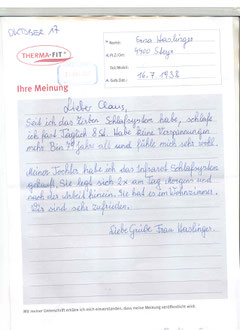 OKTOBER 17
THERMA-FIT®
Name: Frau Haslinger
4400 Steyr
Geb. Dat.: 16.7.1938
Ihre Meinung
Lieber Claus,
Seit ich das Zirben Schlafsystem habe, schlafe
ich fast Täglich 8 Std. Habe keine Verspannungen
mehr. Bin 79 Jahre alt und fühle mich sehr wohl.
Meiner Tochter habe ich das Infrarot Schlafsystem
gekauft, Sie legt sich 2x am Tag Morgens und
nach der Arbeit hinein. Sie hat es im Wohnzimmer.
Wir sind sehr zufrieden.
Liebe Grüße Frau Haslinger.
Mit meiner Unterschrift erkläre ich mich einverstanden, dass meine Meinung veröffentlicht wird.